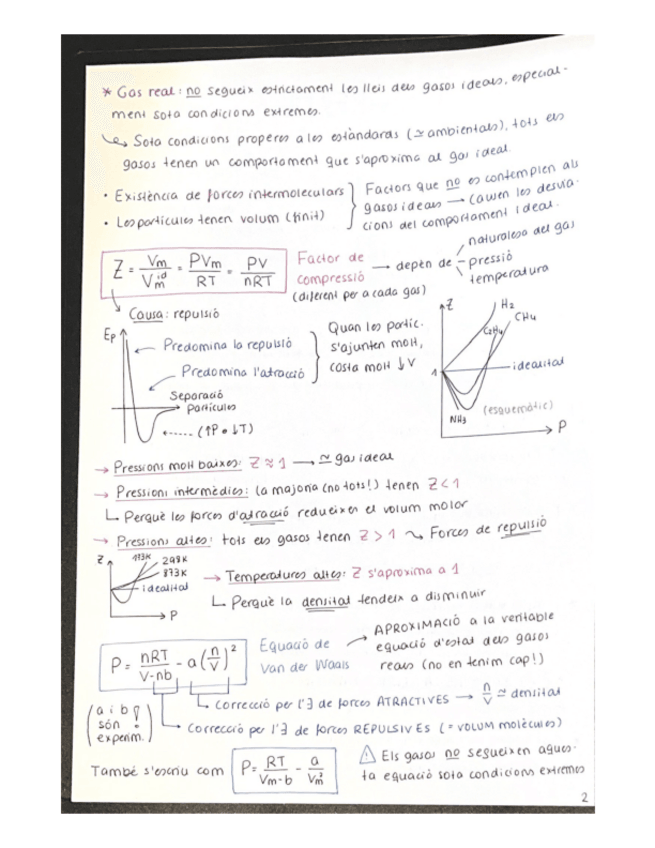 * Gas real: no segueix estrictament les lleis dels gasos ideals, especial-
ment sota condicions extremes.
↳ Sota condicions properes a les estàndards (≃ ambientals), tots els
gasos tenen un comportament que s'aproxima al gas ideal
• Existència de forces intermoleculars
• Les partícules tenen volum (finit)
Factors que no es contemplen als
gasos ideals → causen les desvia-
cions del comportament ideal.
Z = Vm / Vm^id = PVm / RT = PV / nRT
Factor de
compressió
(diferent per a cada gas)
→ depèn de
naturalesa del gas
pressió
temperatura
Causa: repulsió
Ep
Predomina la repulsió
Predomina l'atracció
Separació
partícules
(↑P o ↓T)
Quan les partíc.
s'ajunten molt,
costa molt ↓V
Z
H2
CH4
C2H4
1
idealitat
(esquemàtic)
NH3
P
→ Pressions molt baixes: Z ≈ 1 → ≃ gas ideal
→ Pressions intermèdies: la majoria (no tots!) tenen Z < 1
↳ Perquè les forces d'atracció redueixen el volum molar
→ Pressions altes: tots els gasos tenen Z > 1 ⤳ Forces de repulsió
Z
173K
298K
873K
idealitat
P
→ Temperatures altes: Z s'aproxima a 1
↳ Perquè la densitat tendeix a disminuir
P = nRT / V-nb - a(n/V)²
Equació de
Van der Waals
→ APROXIMACIÓ a la veritable
equació d'estat dels gasos
reals (no en tenim cap!)
↳ Correcció per l'∃ de forces ATRACTIVES → n/V ≃ densitat
↳ Correcció per l'∃ de forces REPULSIVES (= VOLUM molècules)
(a i b
són
experim. !)
També s'escriu com
P = RT / Vm-b - a / Vm²
⚠ Els gasos no segueixen aques-
ta equació sota condicions extremes
2